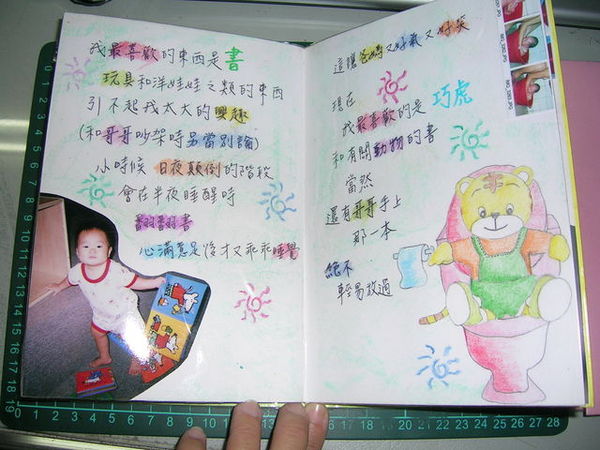 我最喜歡的東西是書
玩具和洋娃娃之類的東西
引不起我太大的興趣
(和哥哥吵架時另當別論)
小時候 日夜顛倒的階段
會在半夜睡醒時
翻翻書
心滿意足後才又乖乖睡覺
這讓爸媽又好氣又好笑
現在
我最喜歡的是 巧虎
和有關動物的書
當然
還有哥哥手上
那一本
絕不
輕易放過
0 1 2 3 4 5 6 7 8 9 10 11 12 13 14 15 16 17 18 19 20 21 22 23 24 25 26 27 28